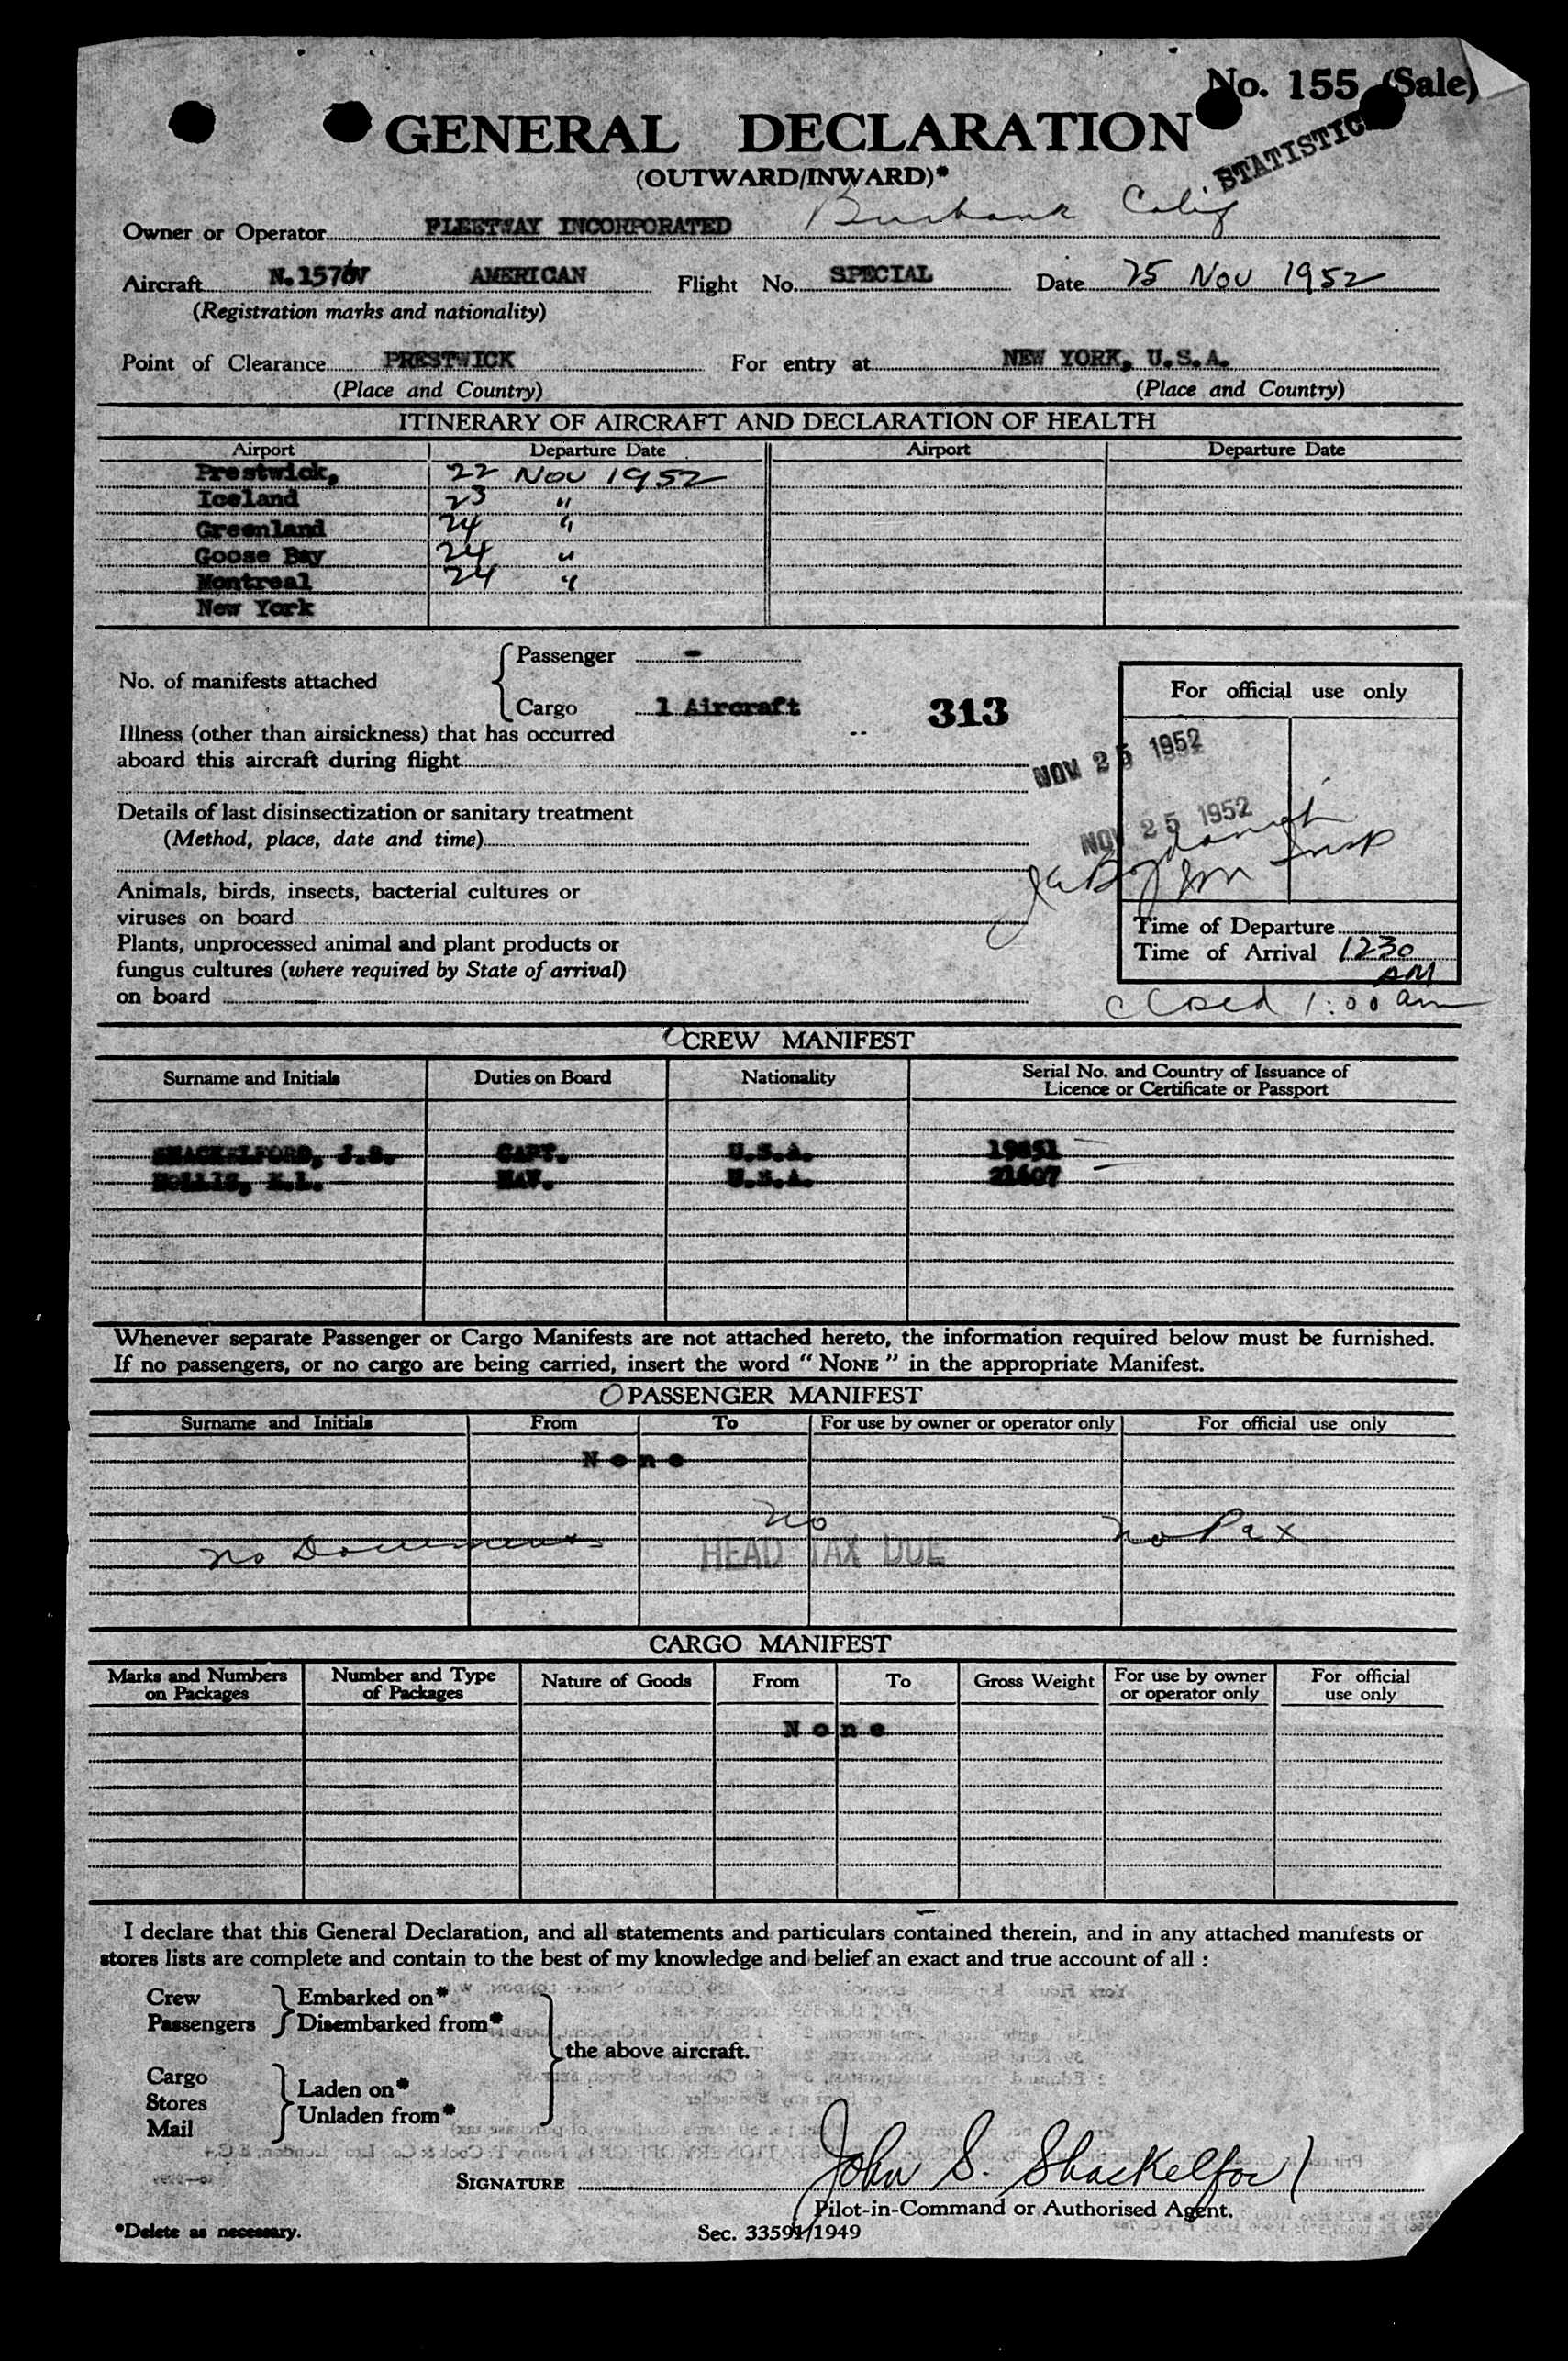 No. 155 (Sale)
GENERAL DECLARATION
STATISTICS
(OUTWARD/INWARD)*
Owner or Operator FLEETWAY INCORPORATED Burbank Calif
Aircraft N.1576V AMERICAN Flight No. SPECIAL Date 25 Nov 1952
(Registration marks and nationality)
Point of Clearance PRESTWICK For entry at NEW YORK, U.S.A.
(Place and Country) (Place and Country)
ITINERARY OF AIRCRAFT AND DECLARATION OF HEALTH
Airport Departure Date Airport Departure Date
Prestwick, 22 Nov 1952
Iceland 23 "
Greenland 24 "
Goose Bay 24 "
Montreal 24 "
New York
No. of manifests attached
Passenger -
Cargo 1 Aircraft
313
For official use only
Illness (other than airsickness) that has occurred
aboard this aircraft during flight
NOV 25 1952
Details of last disinsectization or sanitary treatment
(Method, place, date and time)
NOV 25 1952
Imm Insp
Animals, birds, insects, bacterial cultures or
viruses on board
Plants, unprocessed animal and plant products or
fungus cultures (where required by State of arrival)
on board
Time of Departure
Time of Arrival 1230
AM
closed 1:00 am
CREW MANIFEST
Surname and Initials Duties on Board Nationality Serial No. and Country of Issuance of
Licence or Certificate or Passport
SHACKELFORD, J.S. CAPT. U.S.A. 19851
HOLLIS, K.L. NAV. U.S.A. 21607
Whenever separate Passenger or Cargo Manifests are not attached hereto, the information required below must be furnished.
If no passengers, or no cargo are being carried, insert the word "NONE" in the appropriate Manifest.
PASSENGER MANIFEST
Surname and Initials From To For use by owner or operator only For official use only
None
no Documents no HEAD TAX DUE no Pax
CARGO MANIFEST
Marks and Numbers on Packages Number and Type of Packages Nature of Goods From To Gross Weight For use by owner or operator only For official use only
None
I declare that this General Declaration, and all statements and particulars contained therein, and in any attached manifests or
stores lists are complete and contain to the best of my knowledge and belief an exact and true account of all :
Crew
Passengers
Embarked on*
Disembarked from*
the above aircraft.
Cargo
Stores
Mail
Laden on*
Unladen from*
SIGNATURE John S. Shackelford
Pilot-in-Command or Authorised Agent.
*Delete as necessary. Sec. 33591/1949